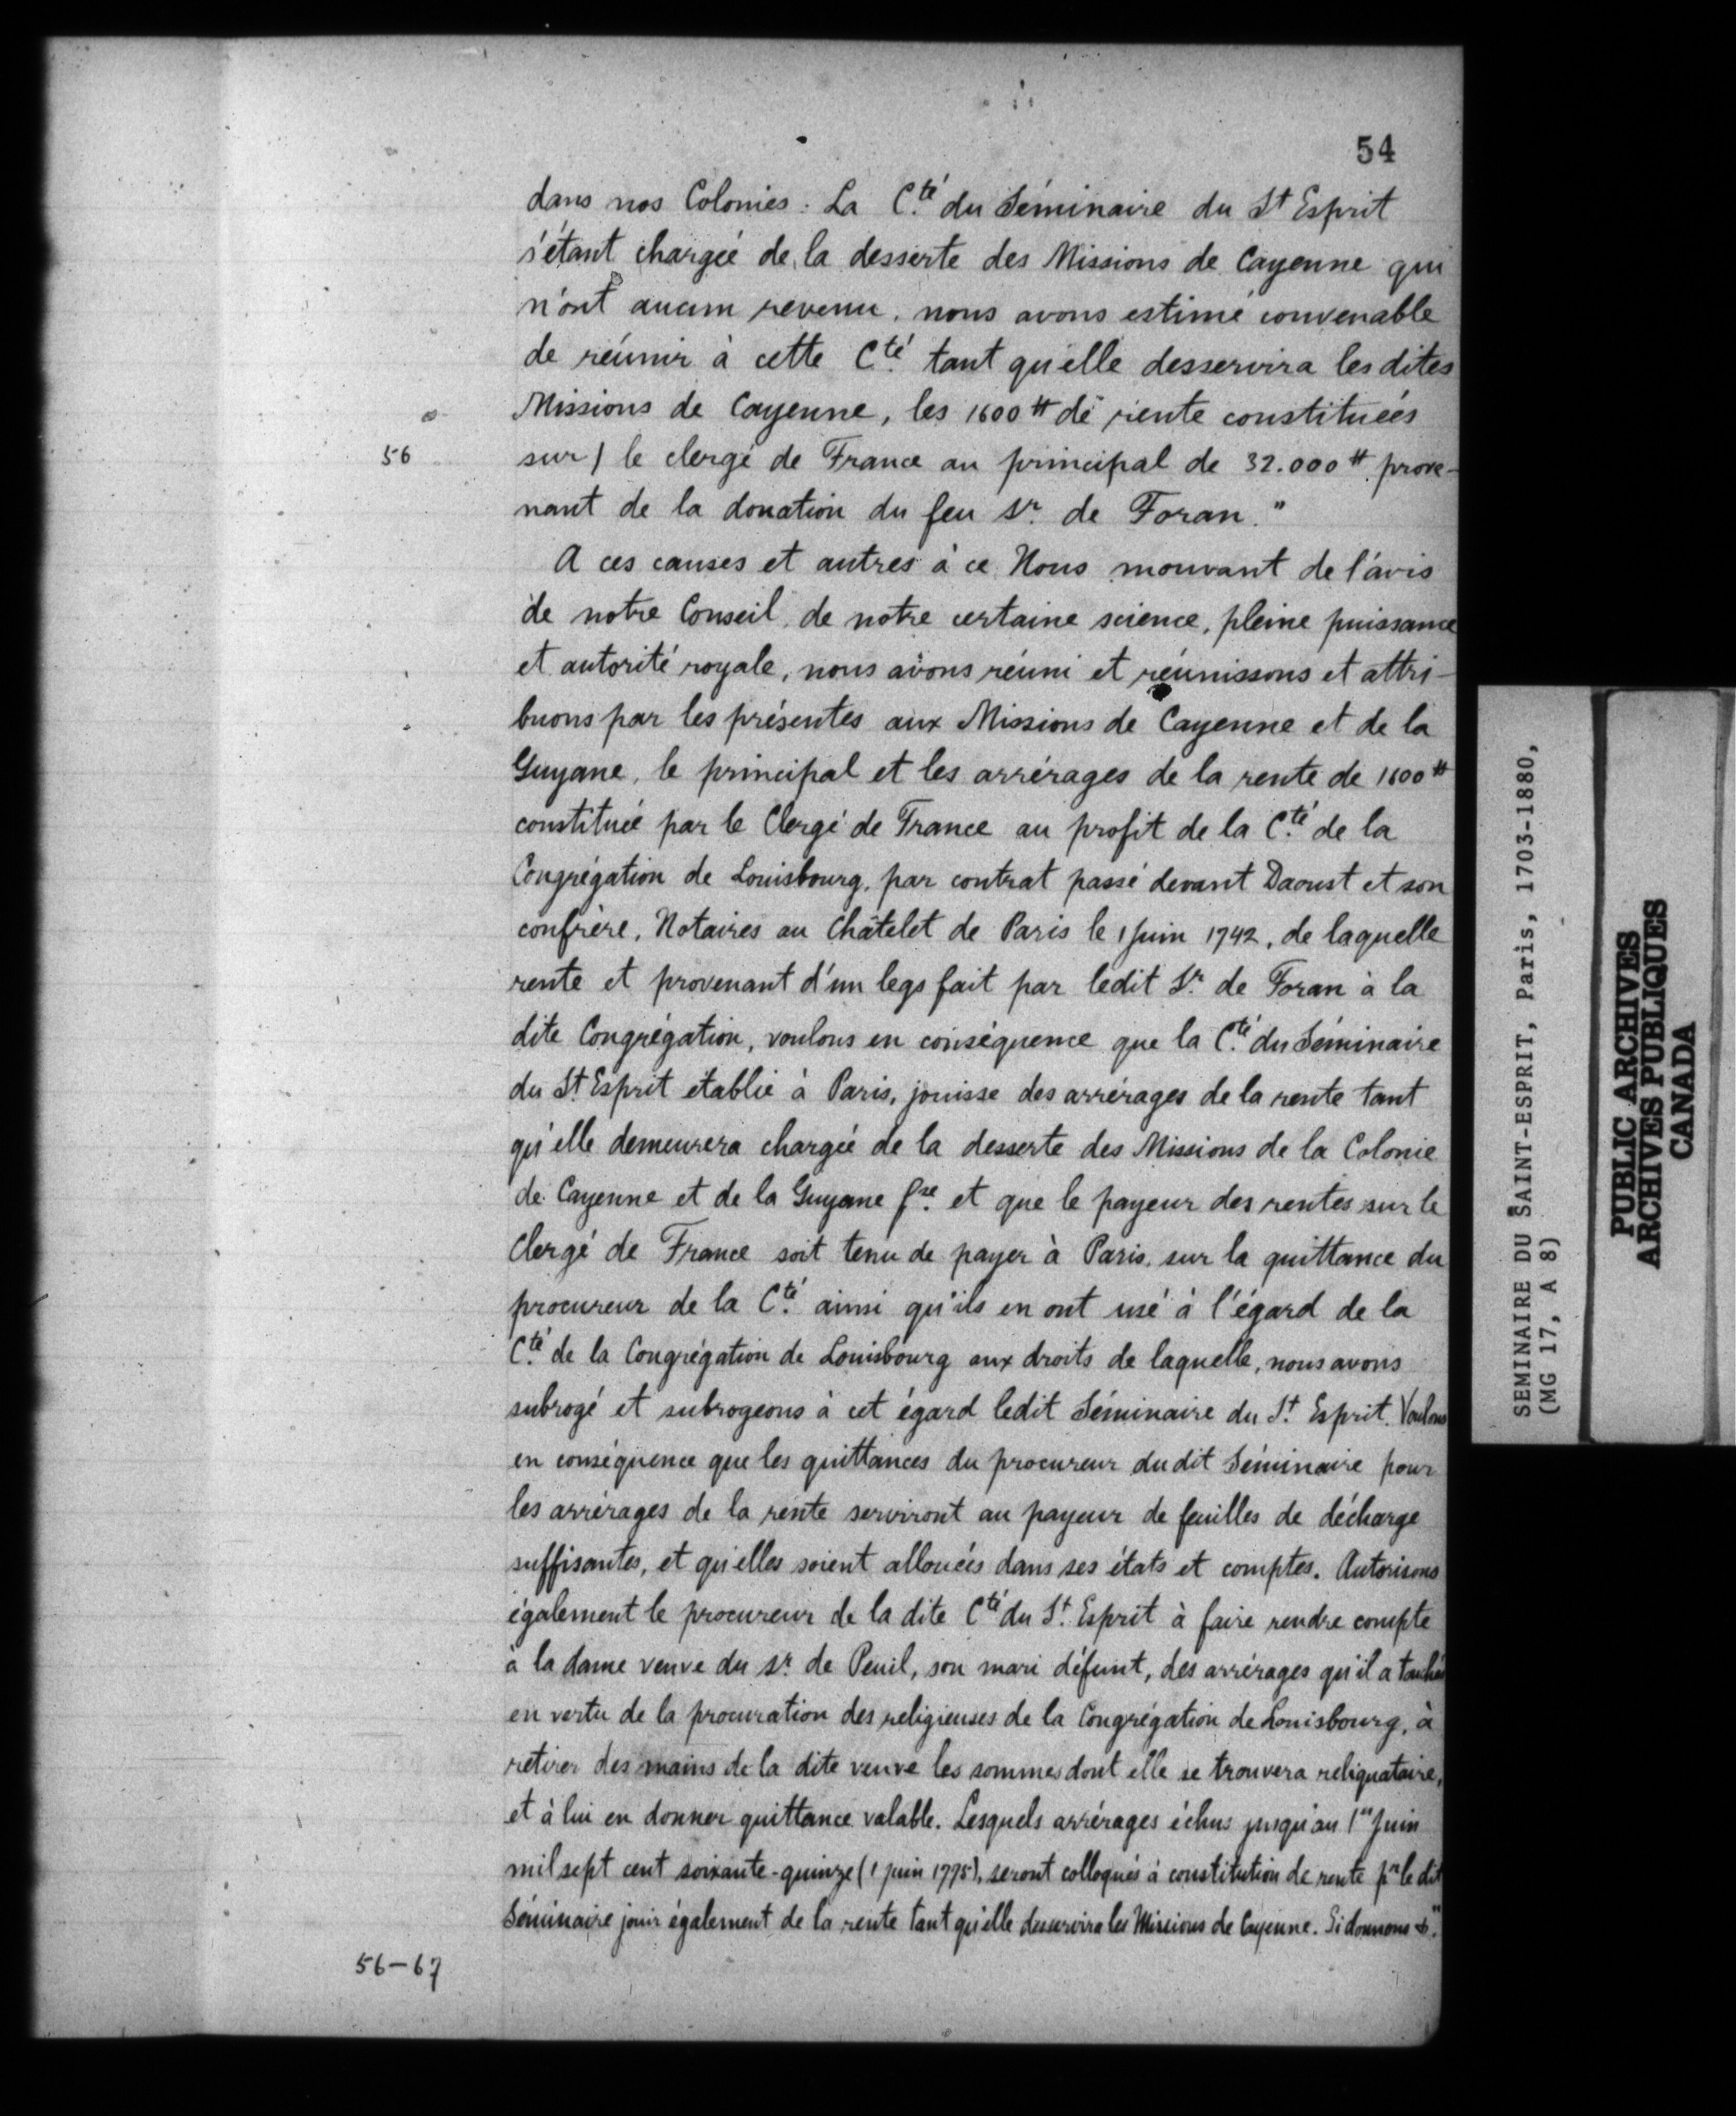 54
dans nos Colonies : La C.té du Séminaire du St Esprit
s'étant chargée de la desserte des Missions de Cayenne qui
n'ont aucun revenu, nous avons estimé convenable
de réunir à cette C.té tant qu'elle desservira les dites
Missions de Cayenne, les 1600 ₶ de rente constituées
56 sur / le clergé de France au principal de 32.000 ₶ prove-
nant de la donation du feu Sr. de Foran."
A ces causes et autres à ce Nous mouvant de l'avis
de notre Conseil, de notre certaine science, pleine puissance
et autorité royale, nous avons réuni et réunissons et attri-
buons par les présentes aux Missions de Cayenne et de la
Guyane, le principal et les arrérages de la rente de 1600 ₶
constituée par le Clergé de France au profit de la C.té de la
Congrégation de Louisbourg, par contrat passé devant Daoust et son
confrère, Notaires au Châtelet de Paris le 1 Juin 1742, de laquelle
rente et provenant d'un legs fait par ledit Sr. de Foran à la
dite Congrégation, voulons en conséquence que la C.té du Séminaire
du St. Esprit établie à Paris, jouisse des arrérages de la rente tant
qu'elle demeurera chargée de la desserte des Missions de la Colonie
de Cayenne et de la Guyane fse. et que le payeur des rentes sur le
Clergé de France soit tenu de payer à Paris, sur la quittance du
procureur de la C.té ainsi qu'ils en ont usé à l'égard de la
C.té de la Congrégation de Louisbourg aux droits de laquelle, nous avons
subrogé et subrogeons à cet égard ledit Séminaire du St. Esprit. Voulons
en conséquence que les quittances du procureur dudit Séminaire pour
les arrérages de la rente serviront au payeur de feuilles de décharge
suffisantes, et qu'elles soient allouées dans ses états et comptes. Autorisons
également le procureur de la dite C.té du St. Esprit à faire rendre compte
à la dame veuve du Sr. de Peuil, son mari défunt, des arrérages qu'il a touchés
en vertu de la procuration des religieuses de la Congrégation de Louisbourg, à
retirer des mains de la dite veuve les sommes dont elle se trouvera reliquataire,
et à lui en donner quittance valable. Lesquels arrérages échus jusqu'au 1er Juin
mil sept cent soixante-quinze (1 juin 1775), seront colloqués à constitution de rente pr le dit
Séminaire jouir également de la rente tant qu'elle desservira les Missions de Cayenne. Si donnons &."
56-67
SEMINAIRE DU SAINT-ESPRIT, Paris, 1703-1880,
(MG 17, A 8)
PUBLIC ARCHIVES
ARCHIVES PUBLIQUES
CANADA